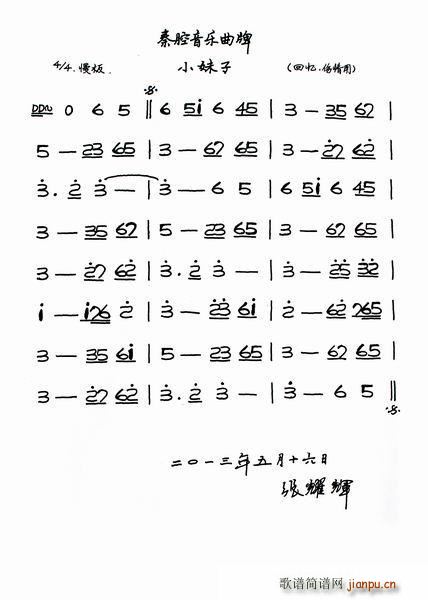 秦腔音乐曲牌
4/4 慢板 小妹子 (回忆、伤情用)
0 6 5 ‖ 6 5i 6 45 | 3 — 35 62 |
5 — 23 65 | 3 — 62 65 | 3 — 27 62 |
3. 2 3 — | 3 — 6 5 | 6 5i 6 45 |
3 — 35 62 | 5 — 23 65 | 3 — 62 65 |
3 — 27 62 | 3. 2 3 — | 3 — 25 32 |
i — i26 2 | 3 — 23 6i | 2 — 62 265 |
3 — 35 6i | 5 — 23 65 | 3 — 62 65 |
3 — 27 62 | 3. 2 3 — | 3 — 6 5 ‖
二〇一三年五月十六日
张耀辉
歌谱简谱网
jianpu.cn